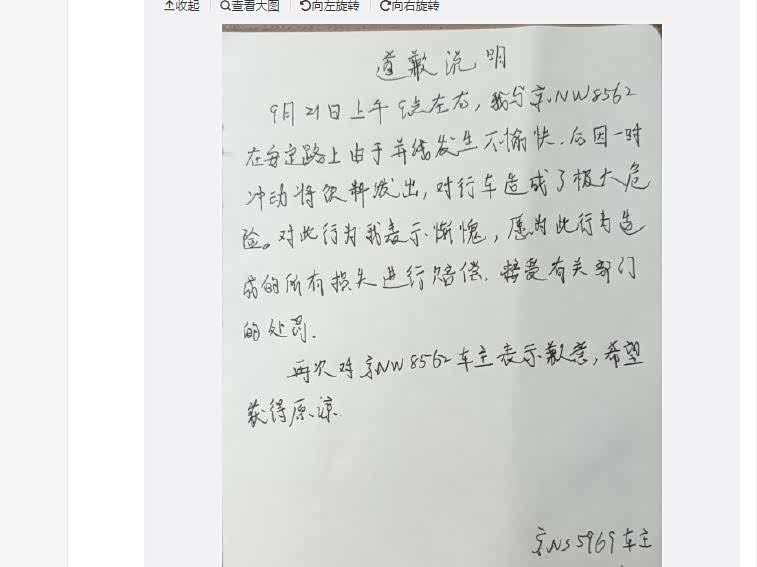 收起 查看大图 向左旋转 向右旋转
道歉说明
9月21日上午9点左右，我与京NW8562
在安定路上由于并线发生不愉快.后因一时
冲动将饮料泼出，对行车造成了极大危
险。对此行为我表示惭愧，愿为此行为造
成的所有损失进行赔偿.接受有关部门
的处罚.
再次对京NW8562车主表示歉意，希望
获得原谅.
京NS5969车主